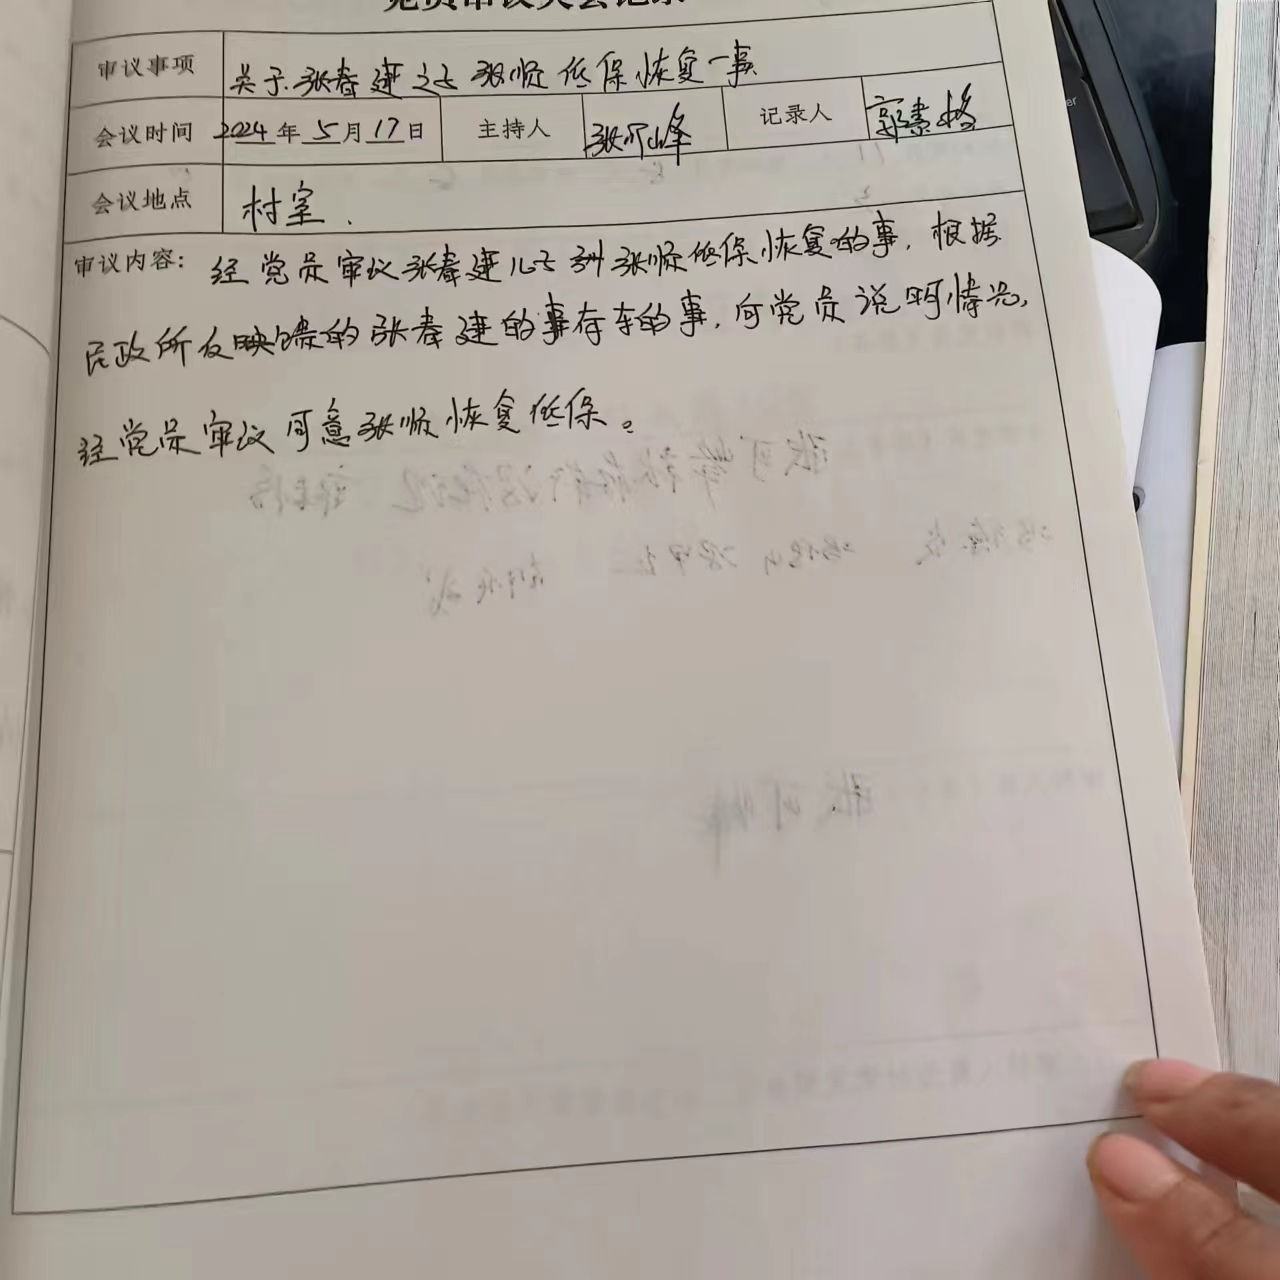 党员审议大会记录
审议事项 关于张春建之子张顺低保恢复一事
会议时间 2024年5月17日 主持人 张可峰 记录人 郭素格
会议地点 村室.
审议内容: 经党员审议张春建儿子张顺低保恢复的事,根据
民政所反映的张春建的事存车的事,向党员说明情况,
经党员审议同意张顺恢复低保。